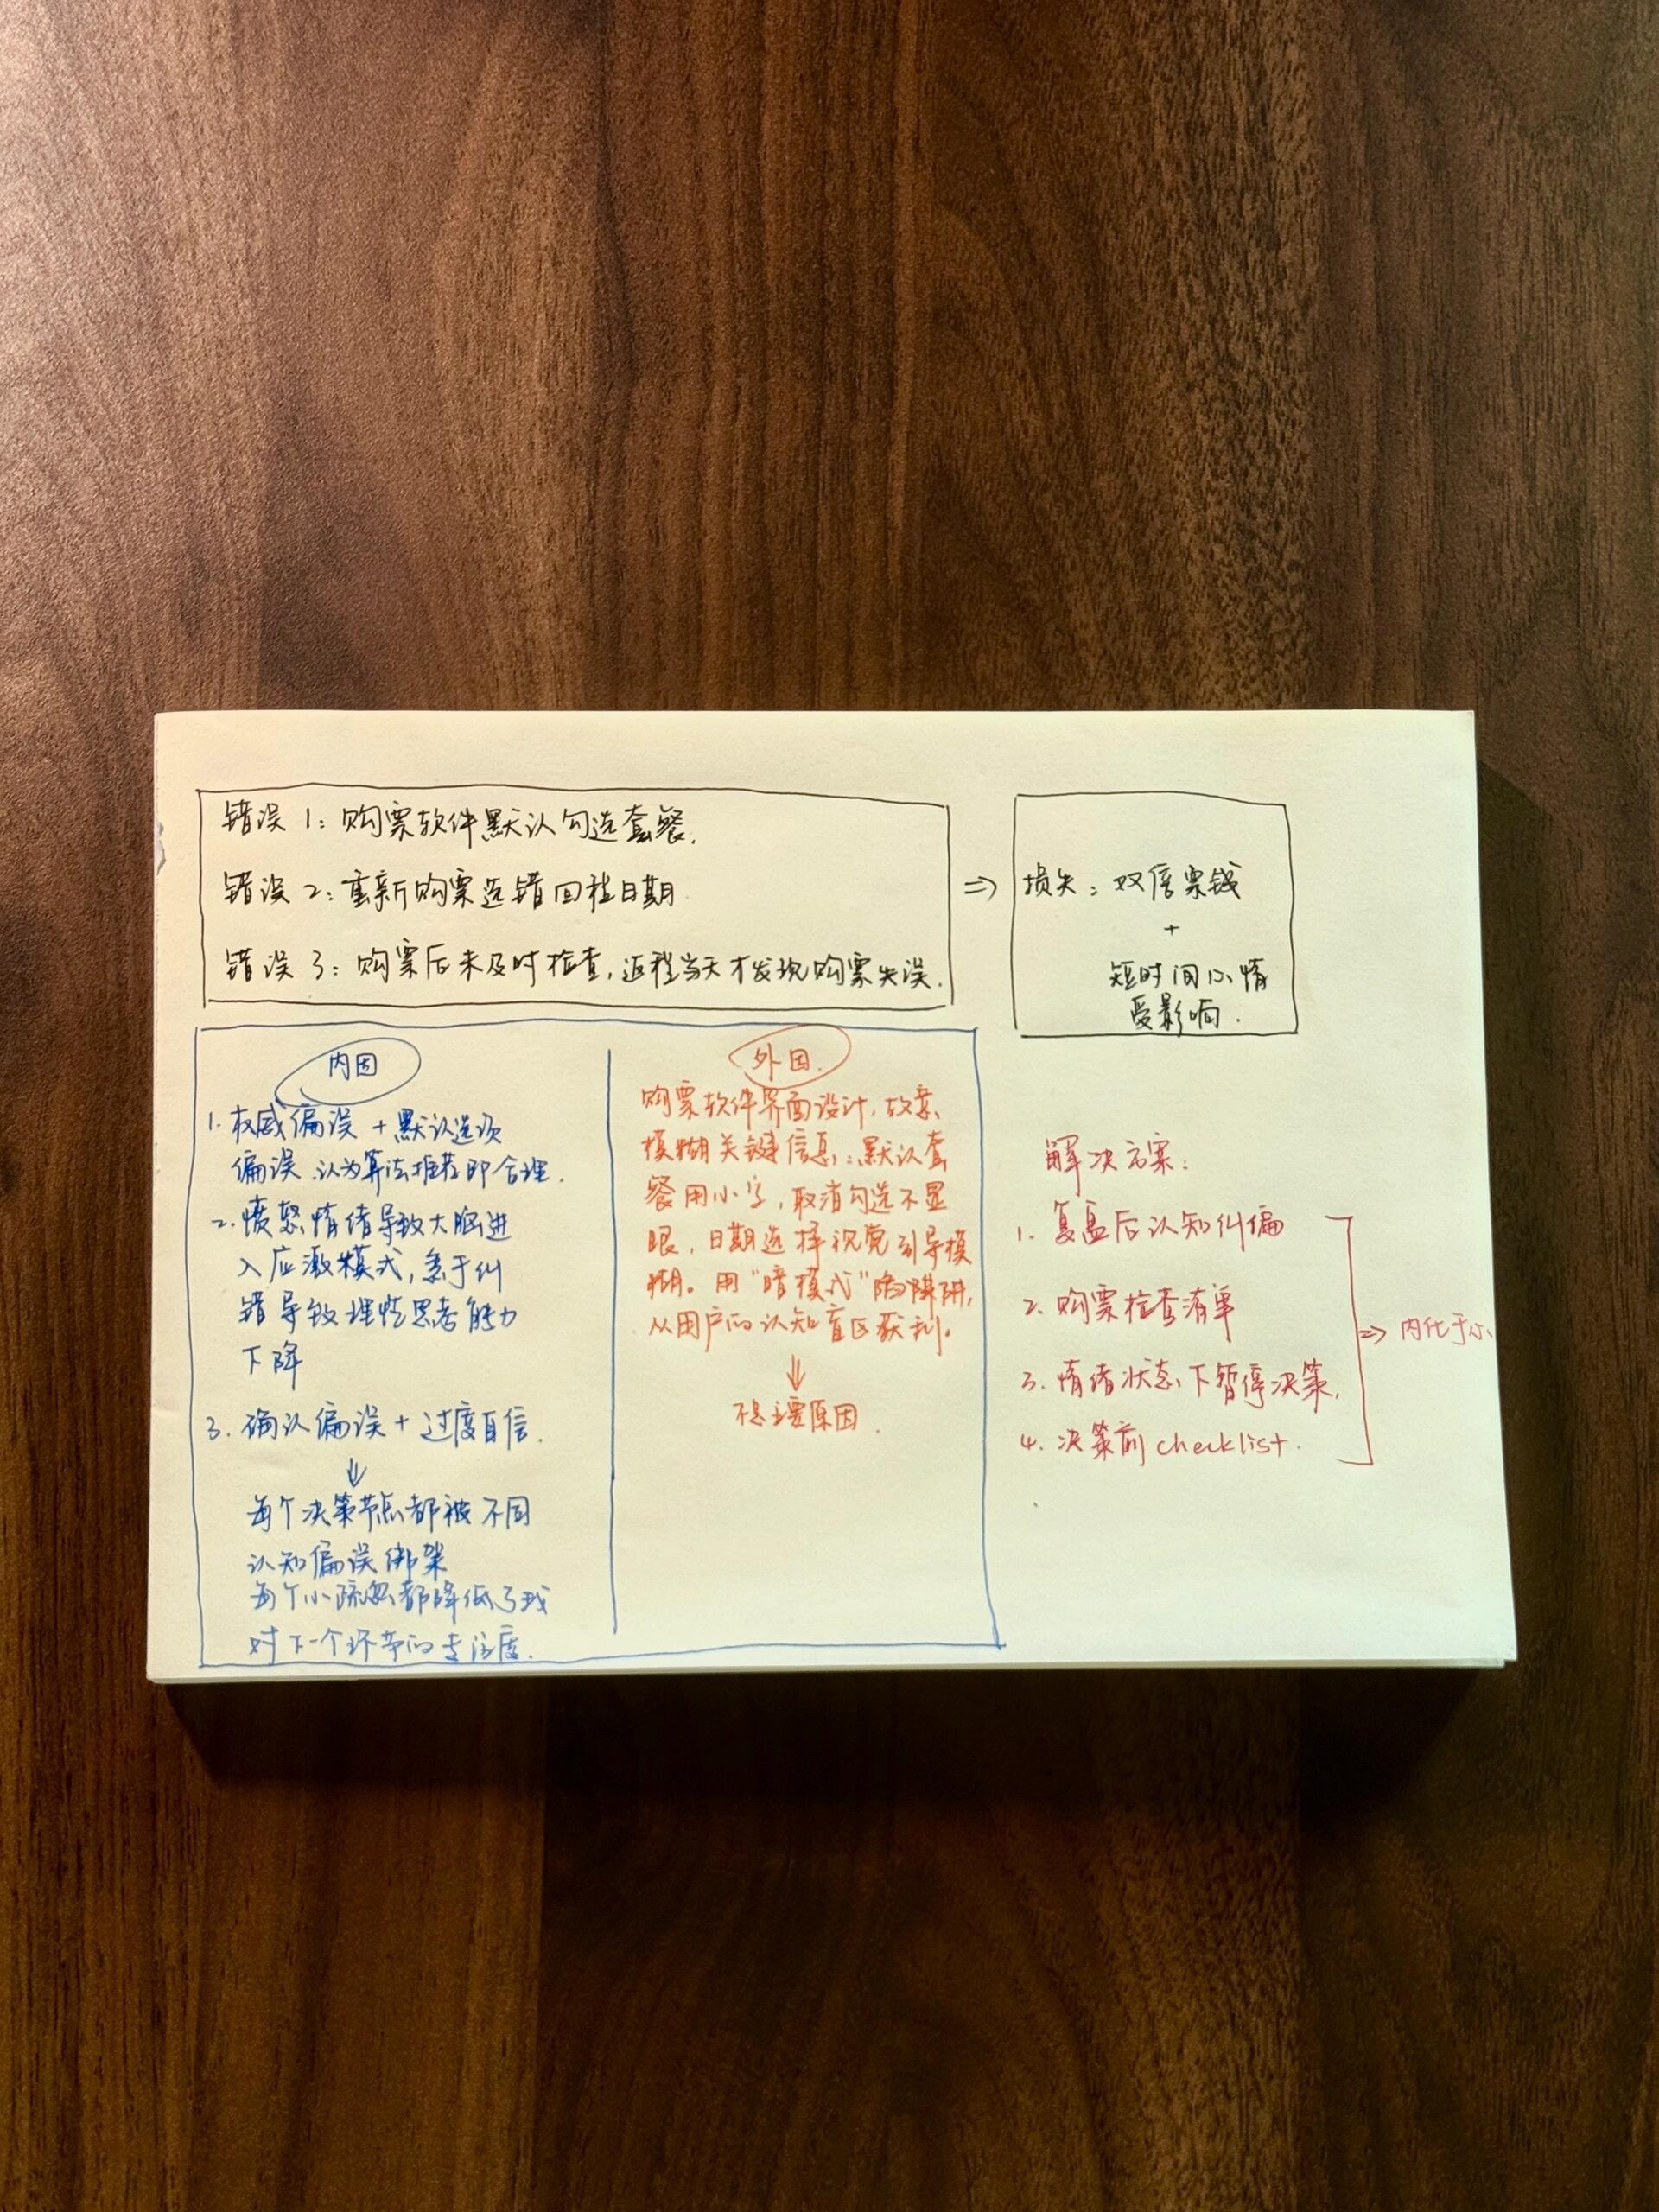 错误 1: 购票软件默认勾选套餐.
错误 2: 重新购票选错回程日期
错误 3: 购票后未及时检查,返程当天才发现购票失误.
⇒ 损失: 双倍票钱
+
短时间心情
受影响.
内因
1. 权威偏误 + 默认选项
偏误.认为算法推荐即合理.
2. 愤怒情绪导致大脑进
入应激模式,急于纠
错导致理性思考能力
下降
3. 确认偏误 + 过度自信.
↓
每个决策节点都被不同
认知偏误绑架
每个小疏忽都降低了我
对下一个环节的专注度.
外因.
购票软件界面设计,故意
模糊关键信息:默认套
餐用小字,取消勾选不显
眼,日期选择视觉引导模
糊。用“暗模式”陷阱,
从用户的认知盲区获利。
⇓
不是主要原因.
解决方案:
1. 复盘后认知纠偏
2. 购票检查清单
3. 情绪状态下暂停决策.
4. 决策前checklist.
⇒ 内化于心